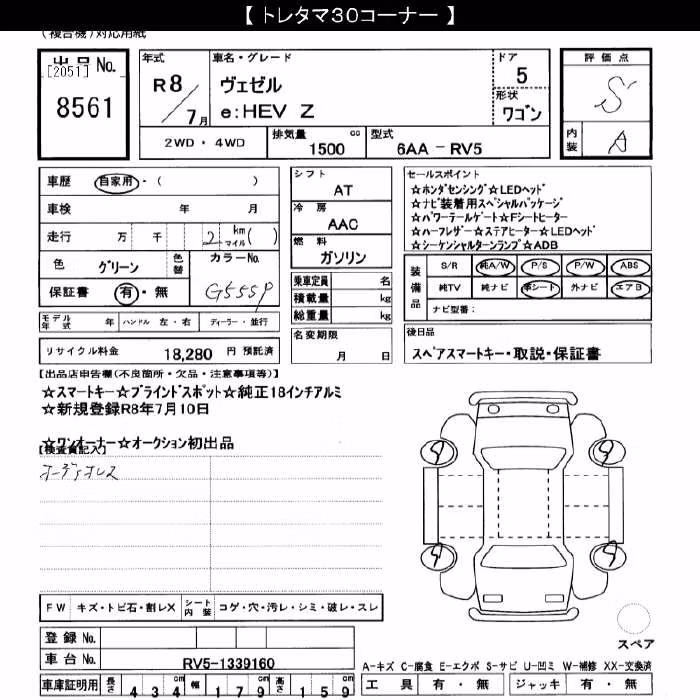 【 トレタマ30コーナー 】
(複合機)対応用紙
出品 No.
[2051]
8561
年式
R8/7月
車名・グレード
ヴェゼル
e:HEV Z
ドア
5
形状
ワゴン
評価点
S
内装
A
2WD ・ 4WD
排気量
1500 cc
型式
6AA - RV5
車歴 自家用 ・( )
車検 年 月
走行 万 千 2 km マイル ( )
色 グリーン 色替 カラーNo.
保証書 有・無 G555P
モデル年式 年 ハンドル 左・右 ディーラー・並行
リサイクル料金 18,280 円 預託済
シフト
AT
冷房
AAC
燃料
ガソリン
乗車定員 名
積載量 kg
総重量 kg
名変期限
月 日
セールスポイント
☆ホンダセンシング☆LEDヘッド
☆ナビ装着用スペシャルパッケージ
☆パワーテールゲート☆Fシートヒーター
☆ハーフレザー☆ステアヒーター☆LEDヘッド
☆シーケンシャルターンランプ☆ADB
装備品
S/R 純A/W P/S P/W ABS
純TV 純ナビ 革シート 外ナビ エアB
ナビ型番:
後日品
スペアスマートキー・取説・保証書
【出品店申告欄(不良箇所・欠品・注意事項等)】
☆スマートキー☆ブラインドスポット☆純正18インチアルミ
☆新規登録R8年7月10日
☆ワンオーナー☆オークション初出品
【検査員記入】
オーディオレス
FW キズ・トビ石・割レX シート内装 コゲ・穴・汚レ・シミ・破レ・スレ
登録 No.
車台 No. RV5-1339160
車庫証明用 長さ 434 cm 幅 179 cm 高さ 159 cm
9 9
9 9
スペア
A-キズ C-腐食 E-エクボ S-サビ U-凹ミ W-補修 XX-交換済
工具 有・無 ジャッキ 有・無